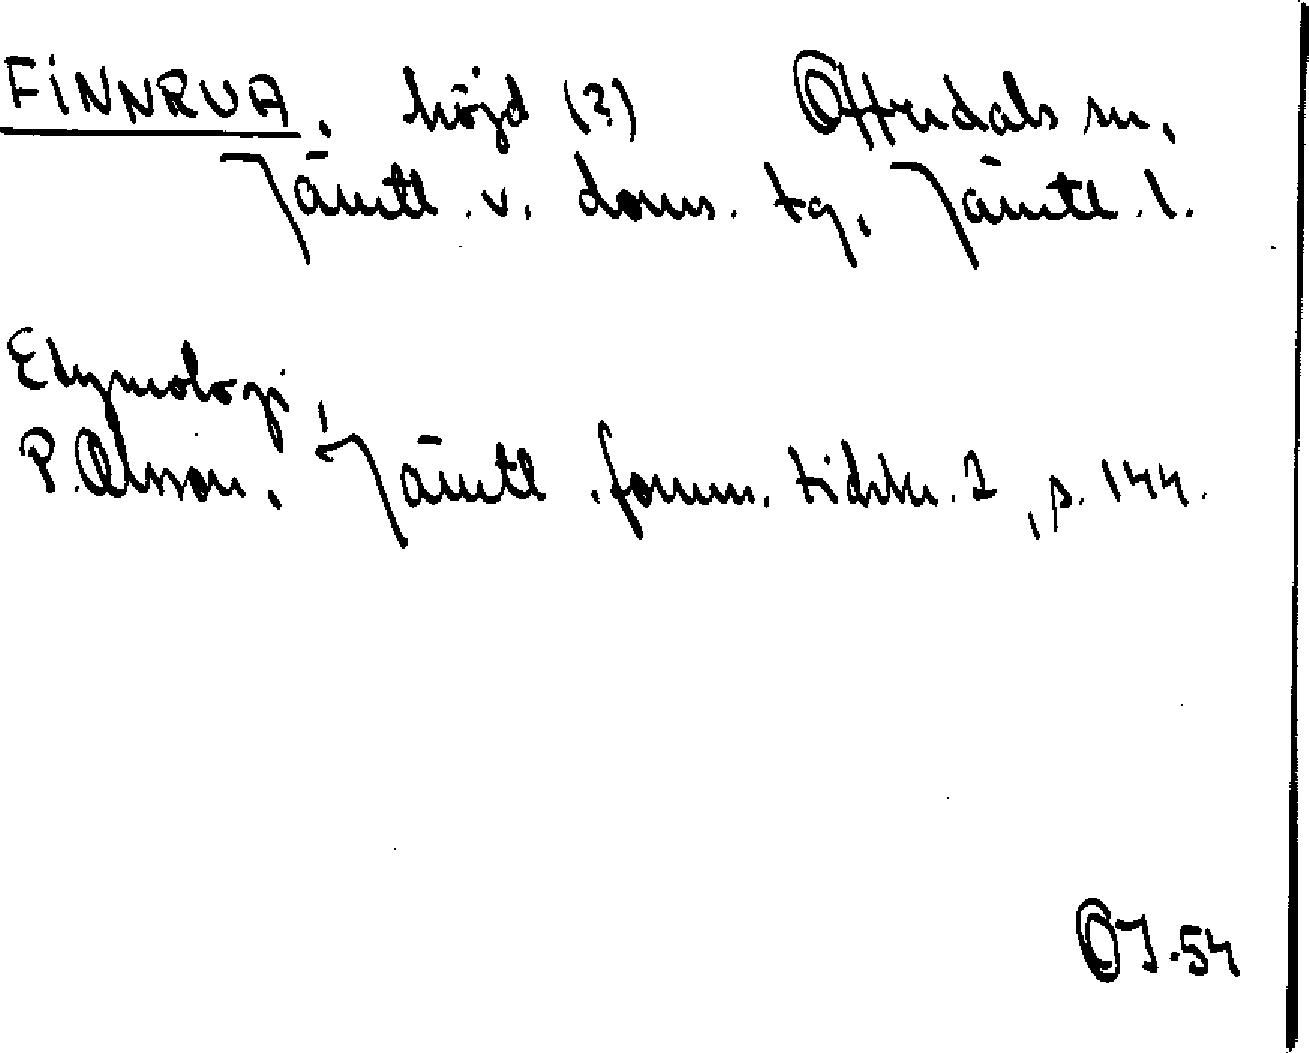 FINNRUA, höjd (?) Offerdals sn,
Jämtl. v. doms. tg, Jämtl. l.
Etymologi
P. Olsson, i Jämtl. fornm. tidskr. 1, s. 144.
OJ. 54